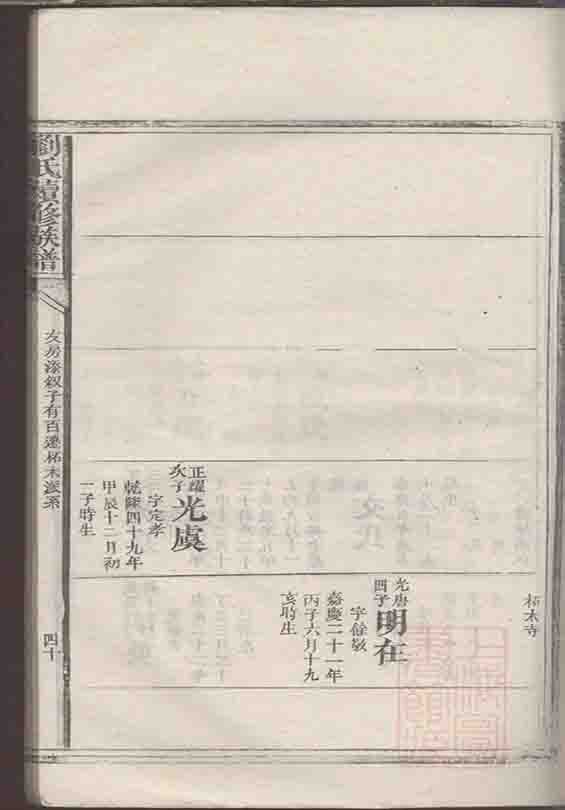 柘木寺
光唐四子
明在
字餘敬
嘉慶二十一年
丙子六月十九
亥時生
正耀次子
光虞
字定孝
乾隆四十九年
甲辰十二月初
二子時生
劉氏續修族譜
次房漆釵子有百遷柘木派系
四十